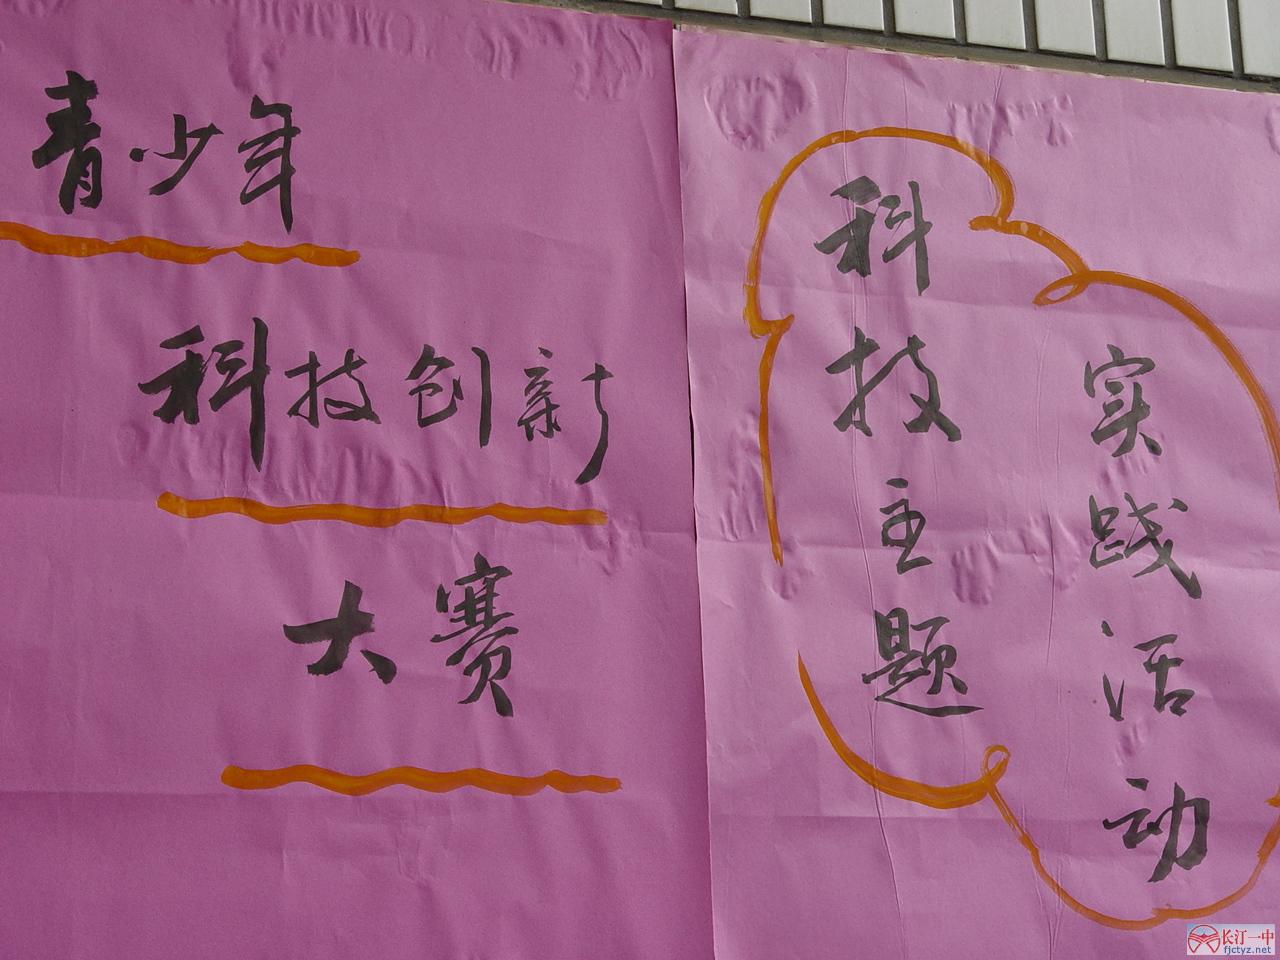 青少年
科技创新
大赛
科技主题
实践活动
长汀一中
fjctyz.net